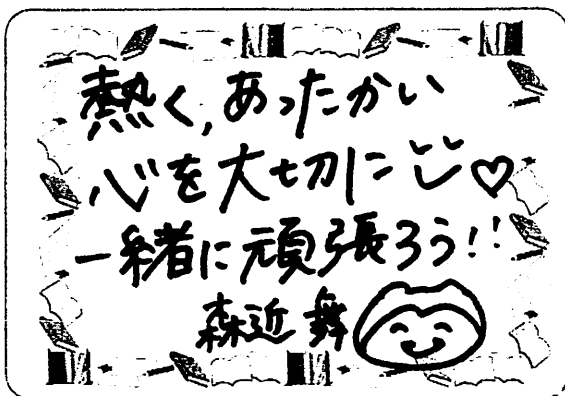 熱く,あったかい
心を大切に♡
一緒に頑張ろう!!
森近 舞